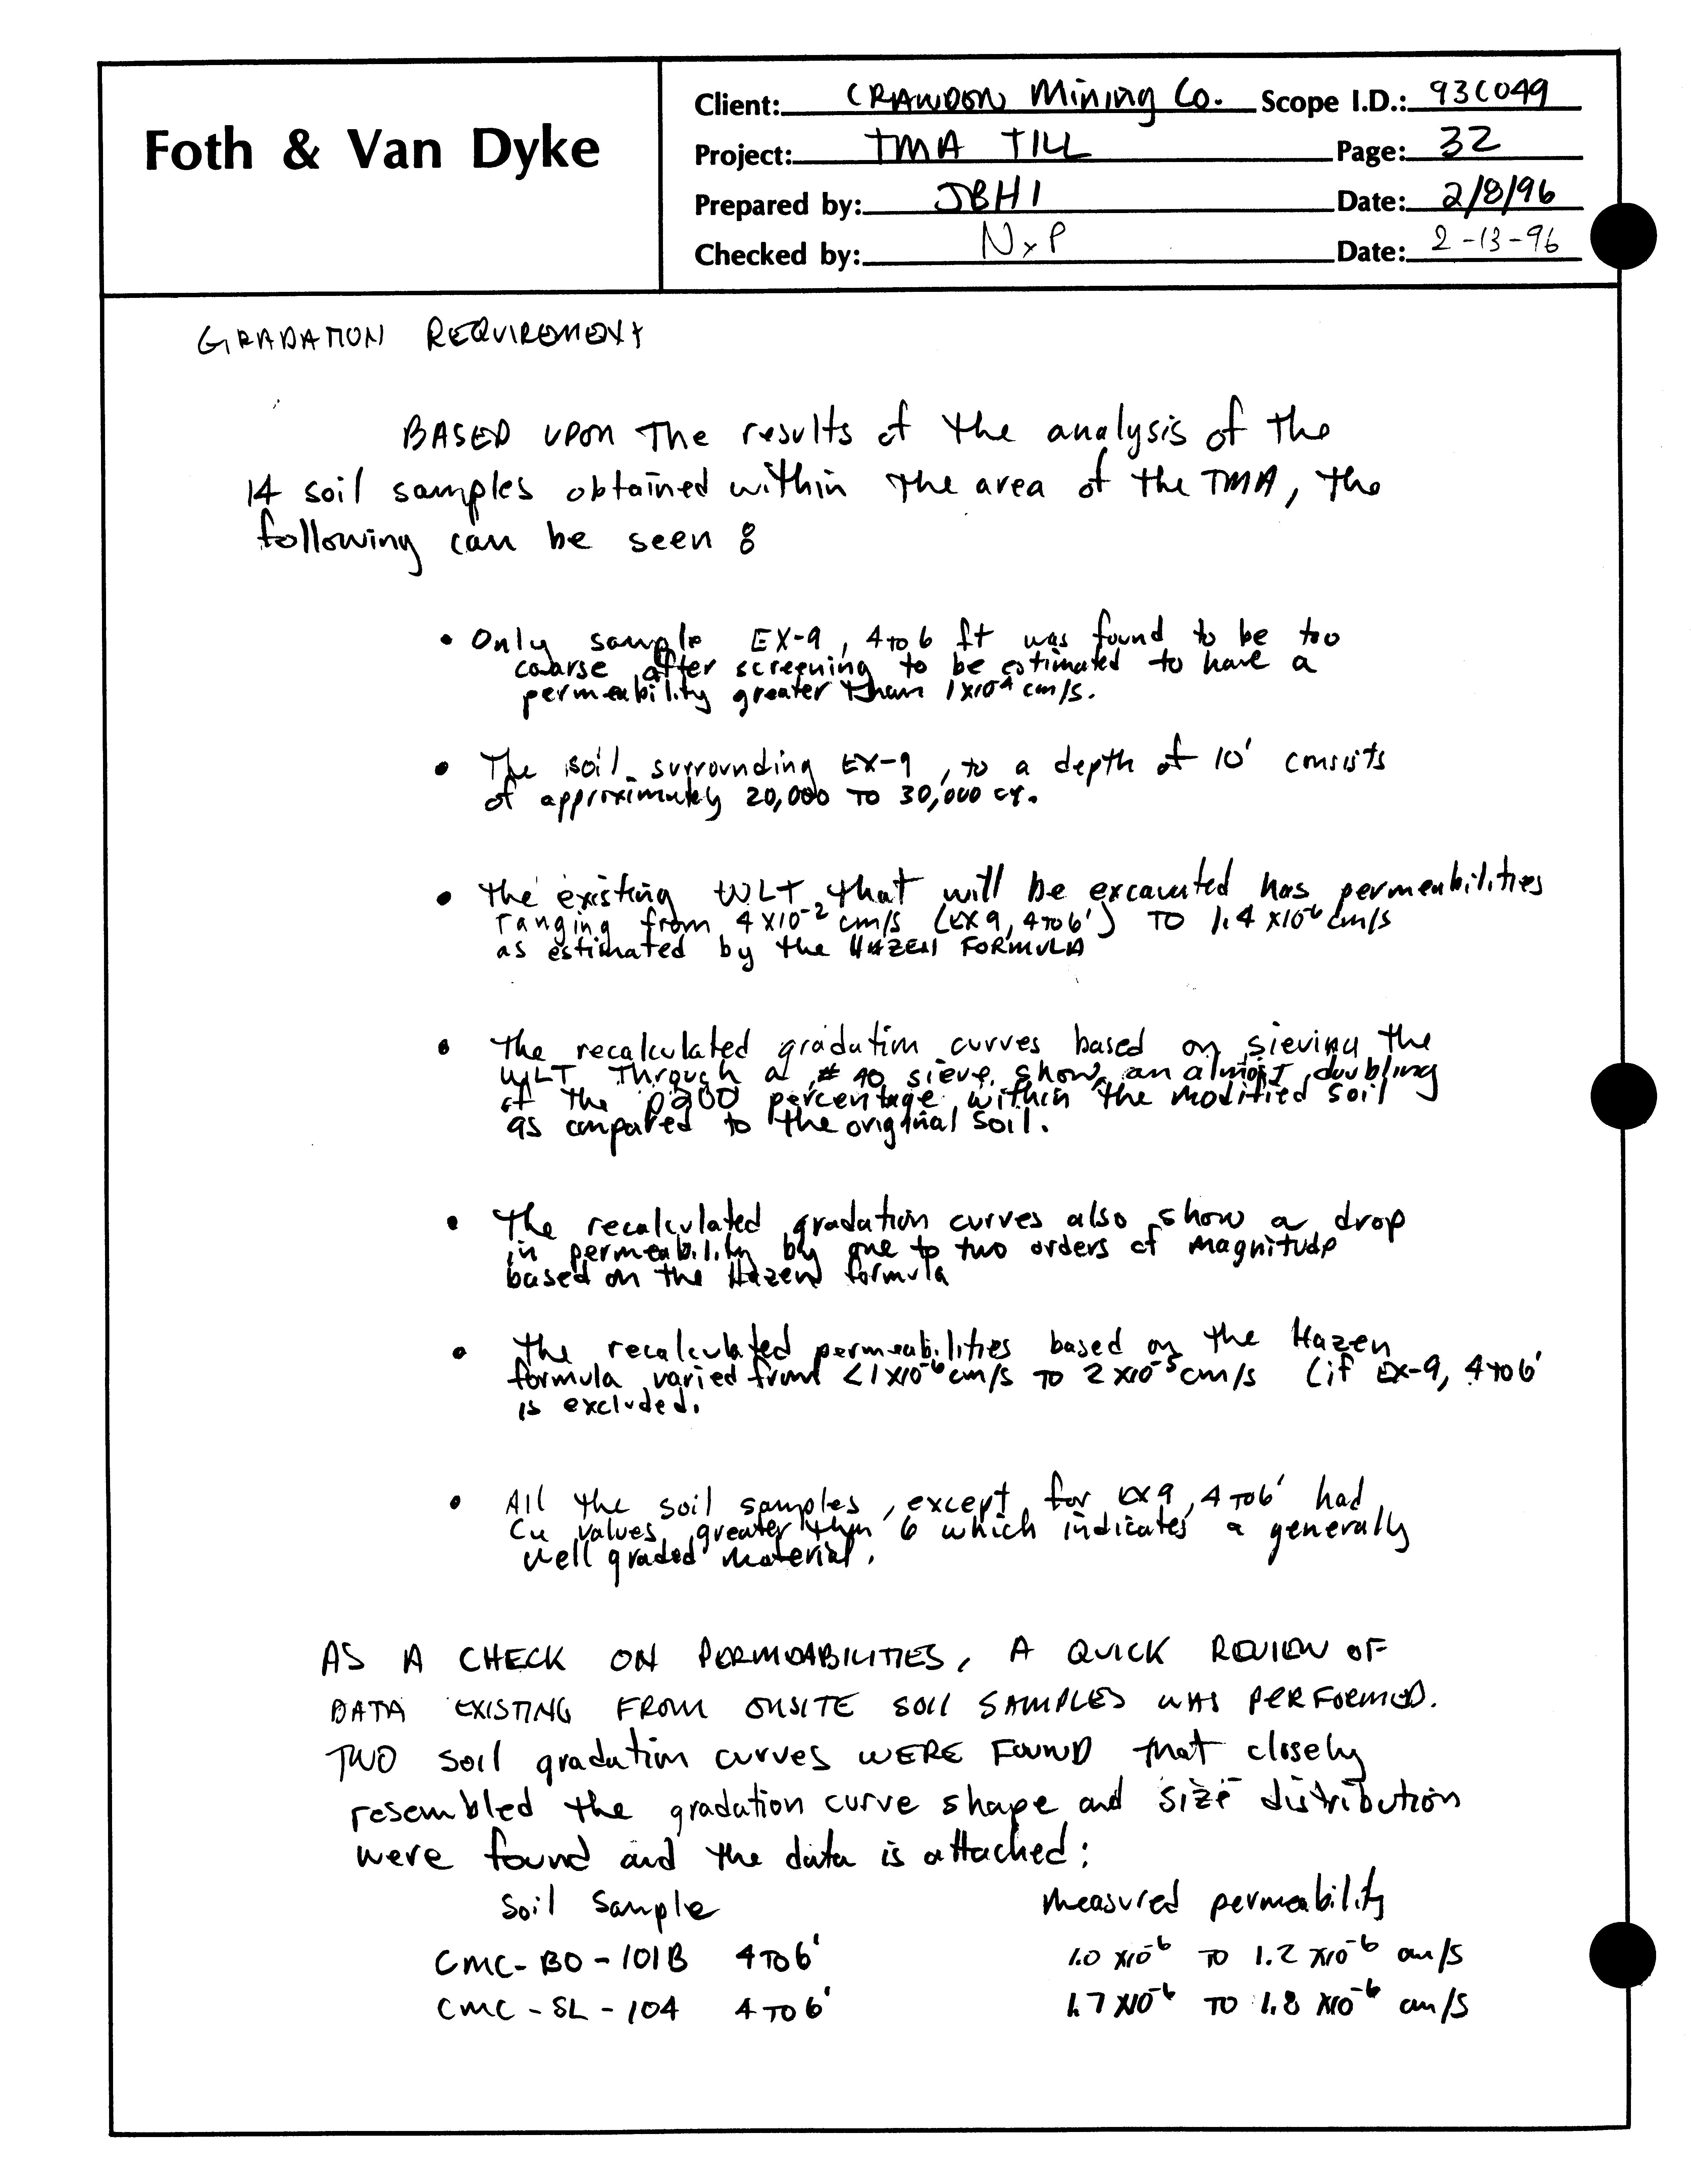 Foth & Van Dyke
Client: CRANDON Mining Co. Scope I.D.: 93C049
Project: TMA TILL Page: 32
Prepared by: JBH1 Date: 2/8/96
Checked by: NxP Date: 2-13-96
GRADATION REQUIREMENT
BASED UPON The results of the analysis of the
14 soil samples obtained within the area of the TMA, the
following can be seen :
• Only sample EX-9, 4 TO 6 ft was found to be too
coarse after screening to be estimated to have a
permeability greater than 1x10⁻⁴ cm/s.
• The soil surrounding EX-9, to a depth of 10' consists
of approximately 20,000 TO 30,000 cy.
• the existing WLT that will be excavated has permeabilities
ranging from 4x10⁻² cm/s (EX 9, 4 TO 6') TO 1.4 x10⁻⁶ cm/s
as estimated by the HAZEN FORMULA
• the recalculated gradation curves based on sieving the
WLT through a #40 sieve show an almost doubling
of the P200 percentage within the modified soil
as compared to the original soil.
• the recalculated gradation curves also show a drop
in permeability by one to two orders of magnitude
based on the Hazen formula
• the recalculated permeabilities based on the Hazen
formula varied from <1x10⁻⁶ cm/s TO 2x10⁻⁵ cm/s (if EX-9, 4 TO 6'
is excluded.
• All the soil samples, except for EX 9, 4 TO 6' had
Cu values greater than 6 which indicates a generally
well graded material.
AS A CHECK ON PERMEABILITIES, A QUICK REVIEW OF
DATA EXISTING FROM ONSITE SOIL SAMPLES WAS PERFORMED.
TWO soil gradation curves WERE FOUND that closely
resembled the gradation curve shape and size distribution
were found and the data is attached:
Soil Sample measured permeability
CMC-BO-101B 4 TO 6' 1.0 x10⁻⁶ TO 1.2 x10⁻⁶ cm/s
CMC-SL-104 4 TO 6' 1.7 x10⁻⁶ TO 1.8 x10⁻⁶ cm/s